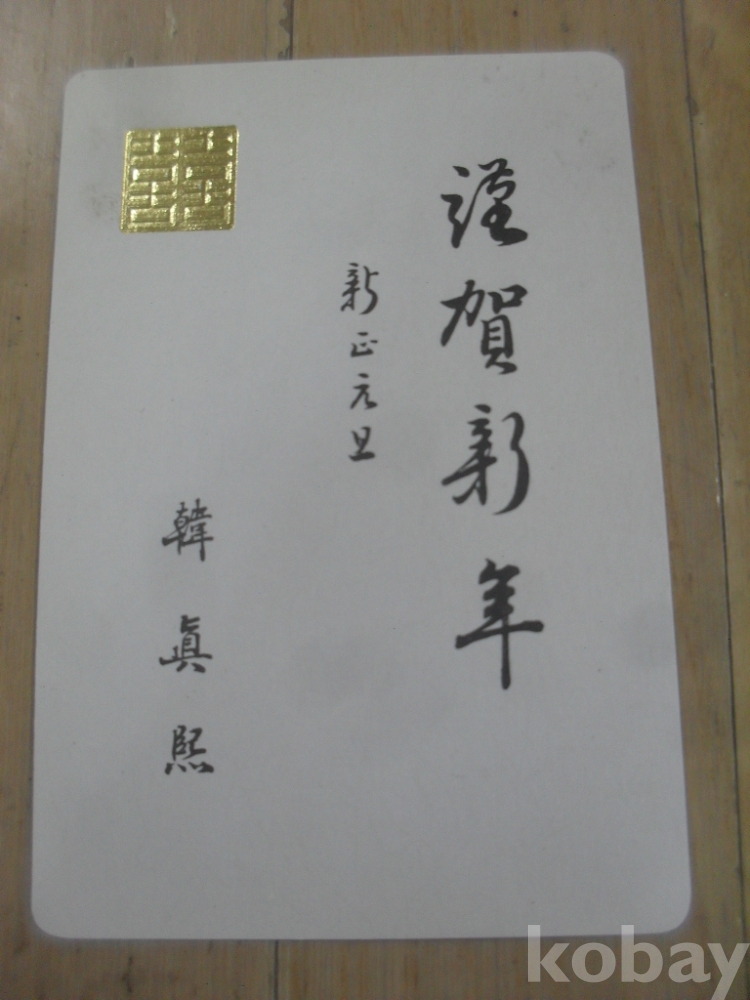 謹賀新年
新正元旦
韓眞熙
囍
kobay